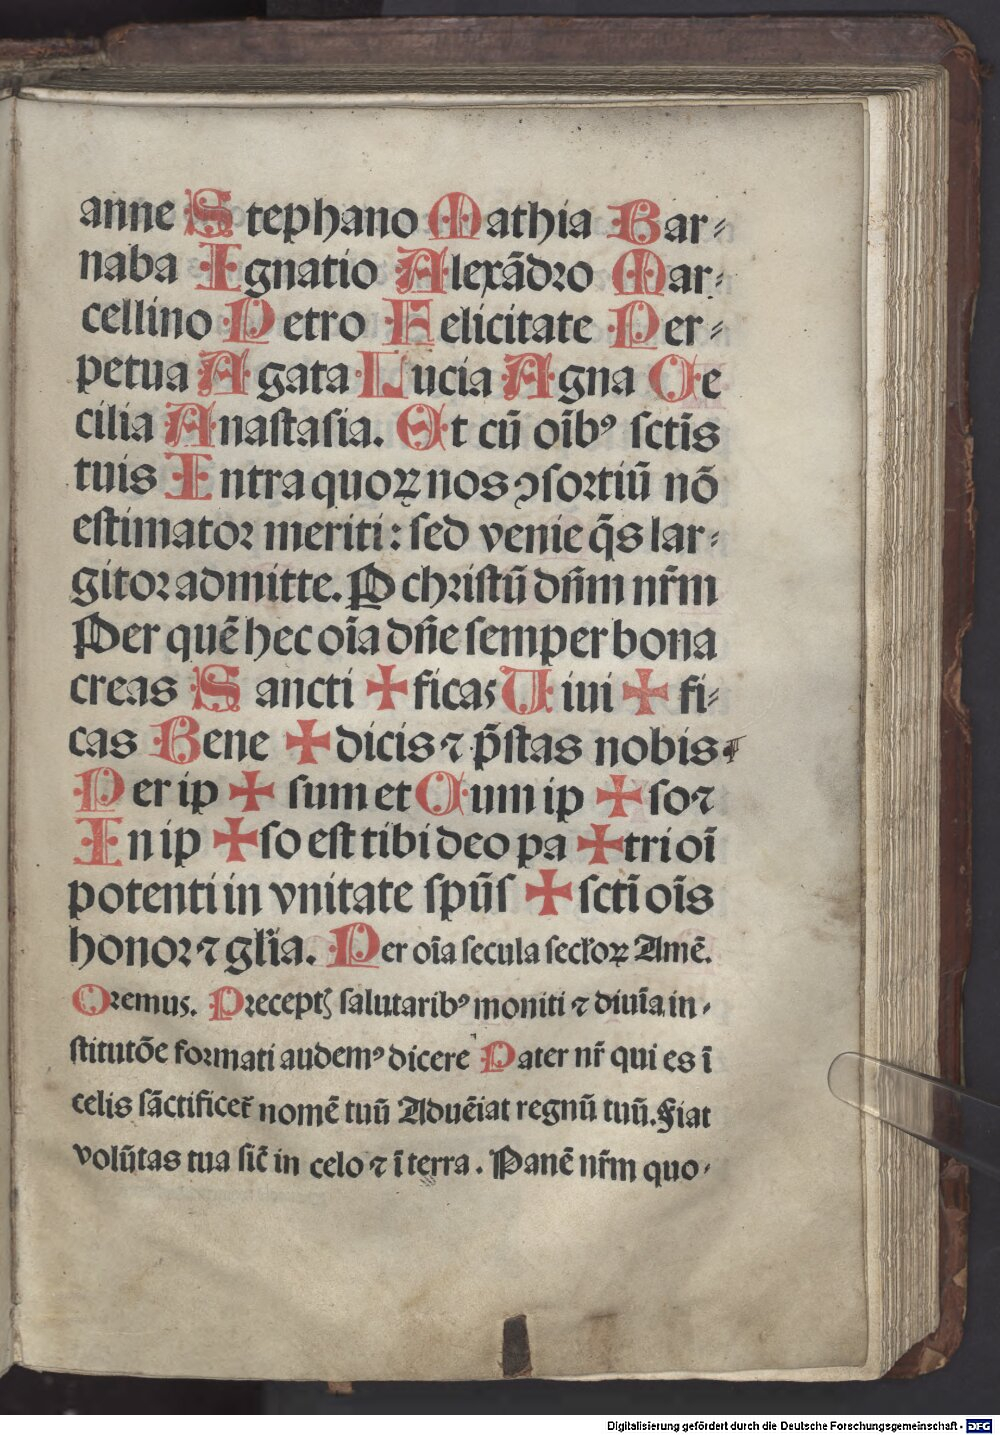 anne Stephano Mathia Bar⸗
naba Ignatio Alexãdro Mar⸗
cellino Petro Felicitate Per⸗
petua Agata Lucia Agna Ce
cilia Anastasia. Et cũ oĩbꝰ sctĩs
tuis Intra quoꝝ nos ꝯſortiũ nõ
eſtimator meriti: ſed venie q̃s lar⸗
gitor admitte. P christũ dñm nr̃m
Per quẽ hec oĩa dñe ſemper bona
creas Sancti ✠ ficas Uiui ✠ fi⸗
cas Bene ✠ dicis ⁊ p̃ſtas nobis.
Per ip ✠ ſum et Cum ip ✠ ſo ⁊
In ip ✠ ſo eſt tibi deo pa ✠ tri oĩ
potenti in vnitate ſpũſ ✠ ſctĩ oĩs
honor ⁊ glĩa. Per oĩa ſecula ſecloꝝ Amẽ.
Oremus. Preceptꝭ ſalutaribꝰ moniti ⁊ diuĩa in⸗
ſtitutõe formati audemꝰ dicere Pater nr̃ qui es ĩ
celis ſãctificet̃ nomẽ tuũ Aduẽiat regnũ tuũ. Fiat
volũtas tua ſic̃ in celo ⁊ ĩ terra. Panẽ nr̃m quo⸗
Digitalisierung gefördert durch die Deutsche Forschungsgemeinschaft - DFG